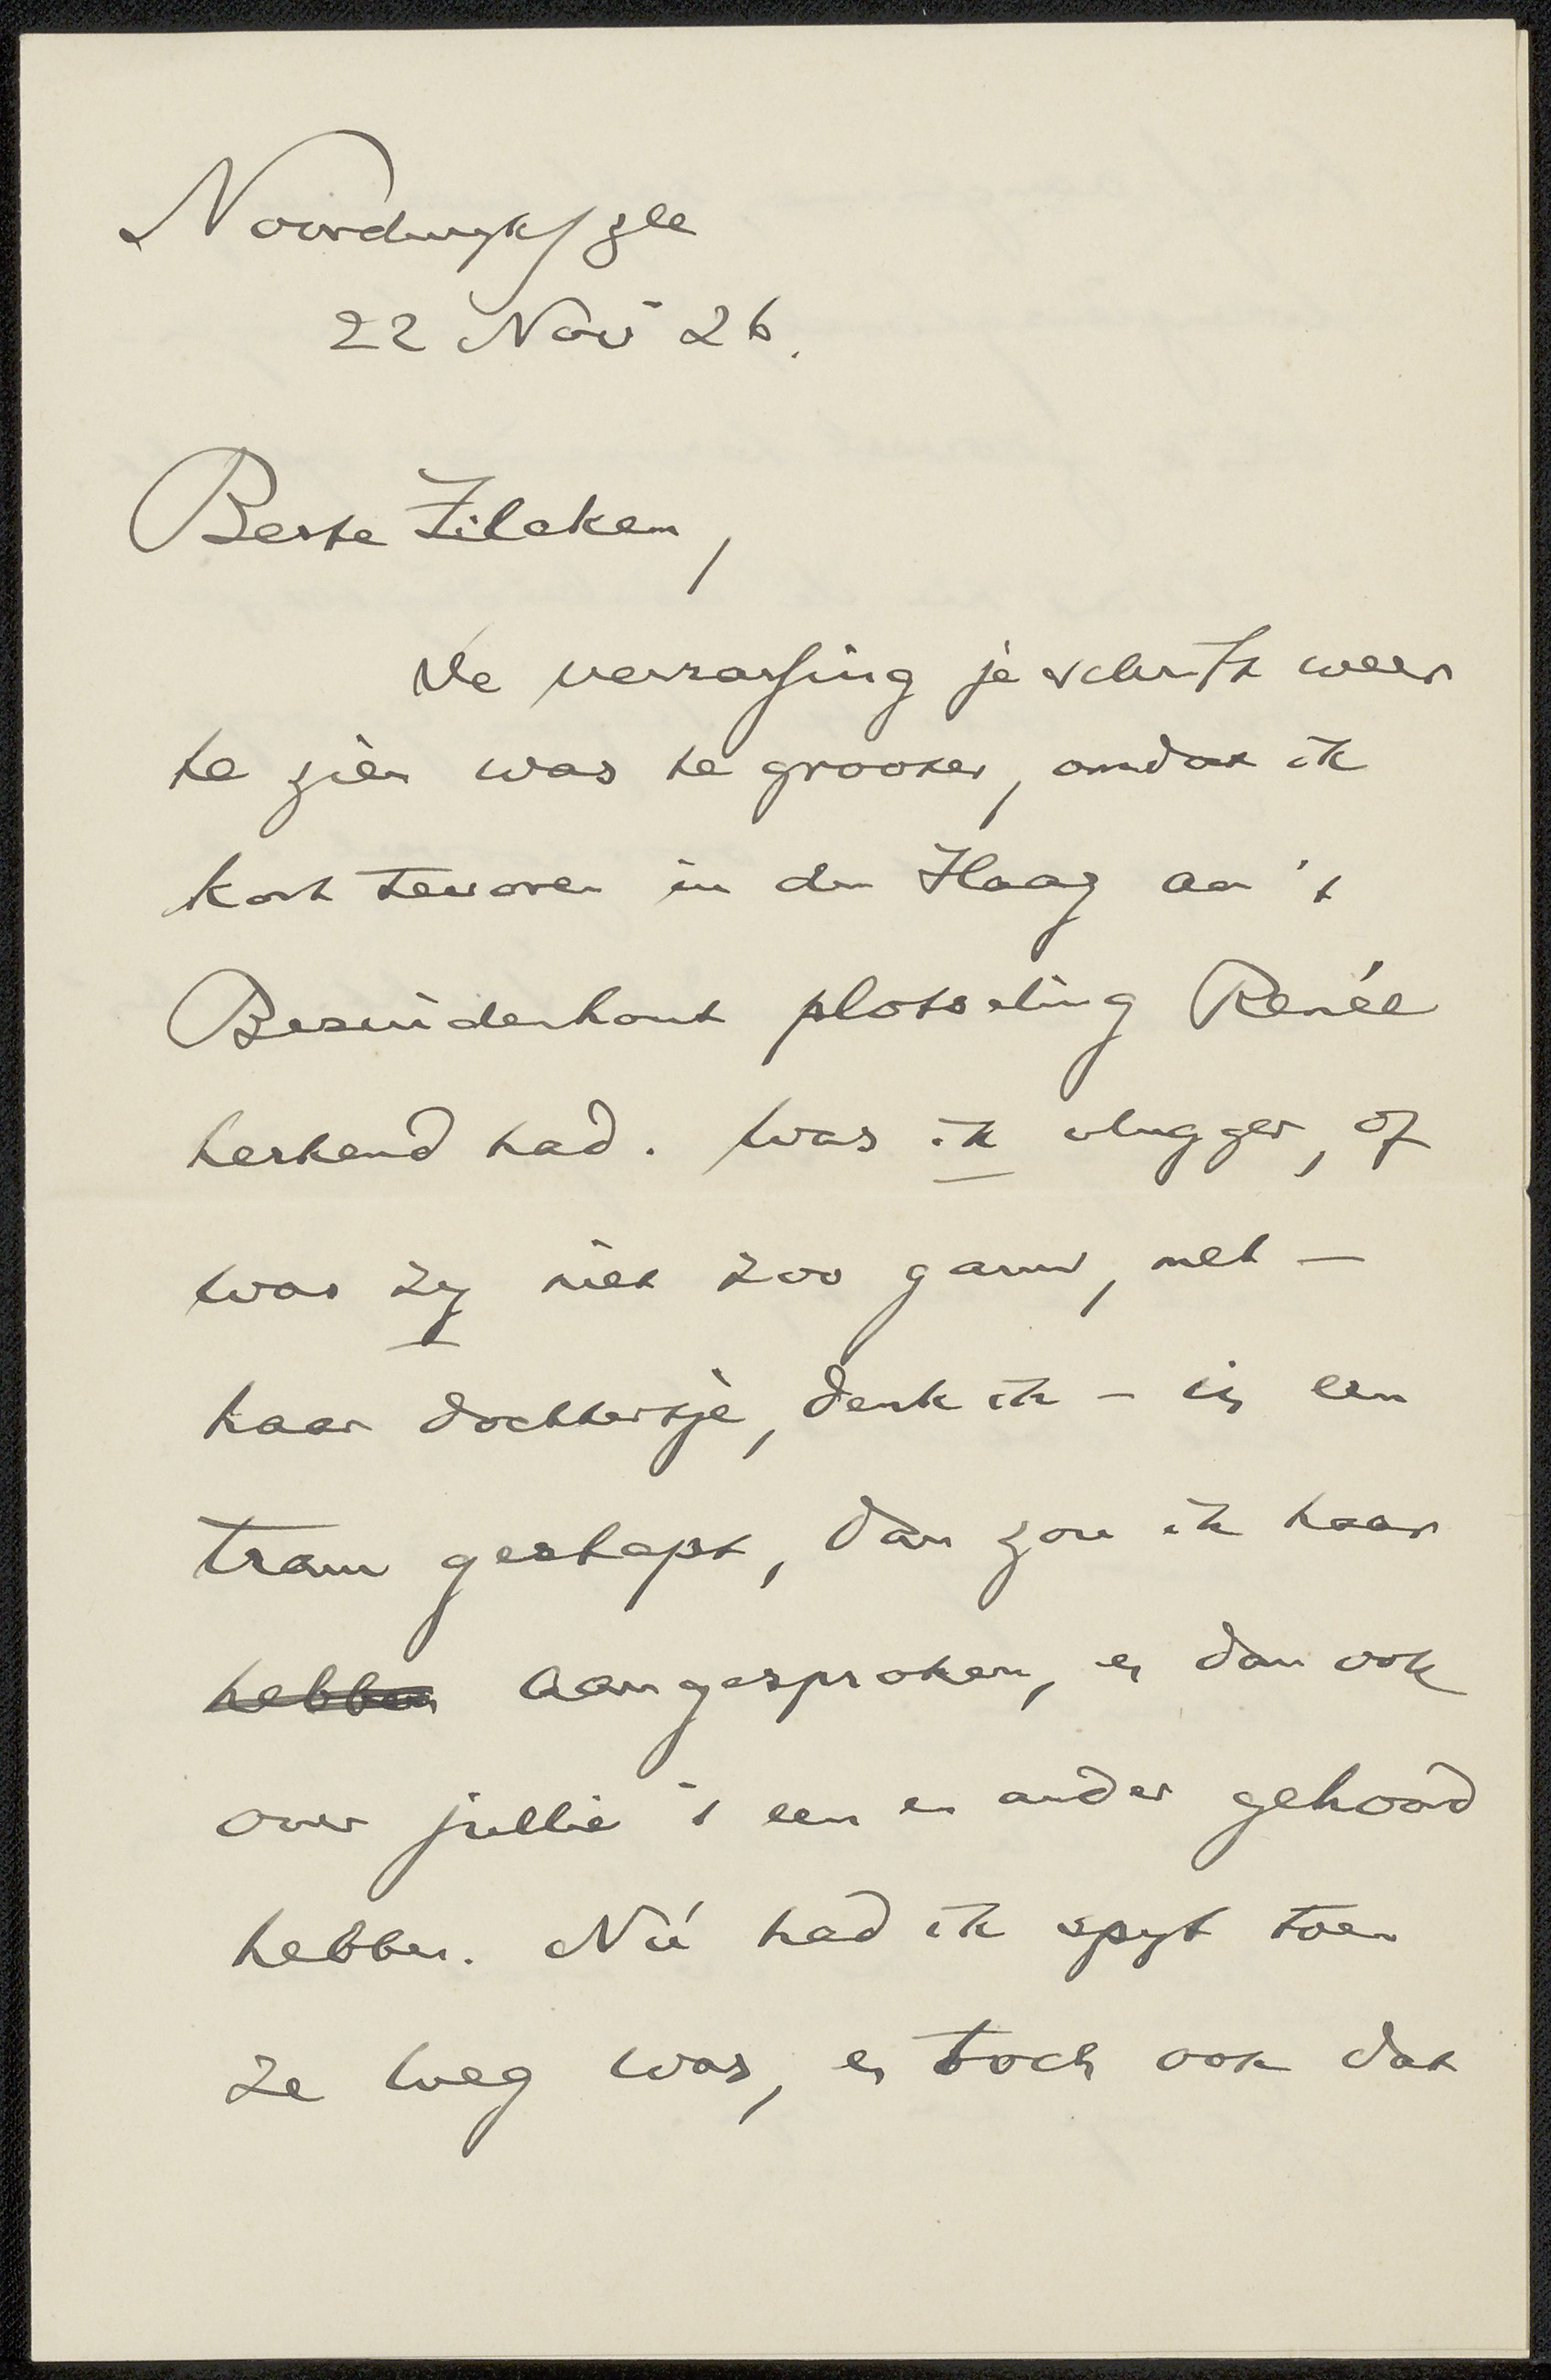 Noordwijk/zee
22 Nov 26.
Beste Zilcken,
De verrassing je schrift weer
te zien was te grooter, omdat ik
kort tevoren in den Haag aan 't
Bezuidenhout plotseling Renée
herkend had. Was ik vlugger, of
was zij niet zoo gauw, met –
haar dochtertje, denk ik – in een
tram gestapt, dan zou ik haar
hebben aangesproken, en dan ook
over jullie 't een en ander gehoord
hebben. Nú had ik spijt toen
ze weg was, en toch ook dat